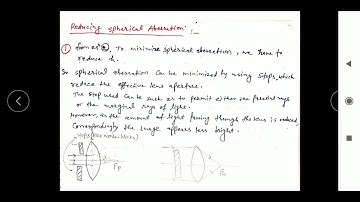 Reducing Spherical Aberration :-
① from eq ②, To minimize spherical aberration, we have to
reduce h.
So spherical aberration can be minimized by using stops, which
reduce the effective lens aperture.
The stop used can be such as to permit either the paraxial rays
or the marginal rays of light.
However, as the amount of light passing through the lens is reduced
Correspondingly the image appears less bright.
stops
Fp